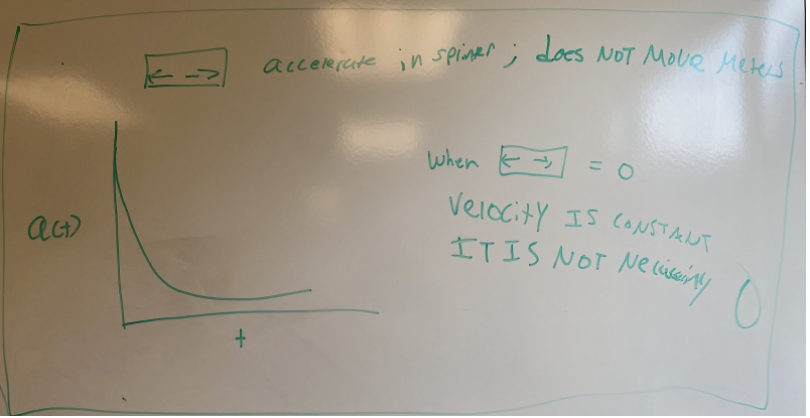 ← → accelerate in spiner; does NOT MOVE Meters
when ← → = 0
VELOCITY IS CONSTANT
a(t)
IT IS NOT Neccisarily 0
t